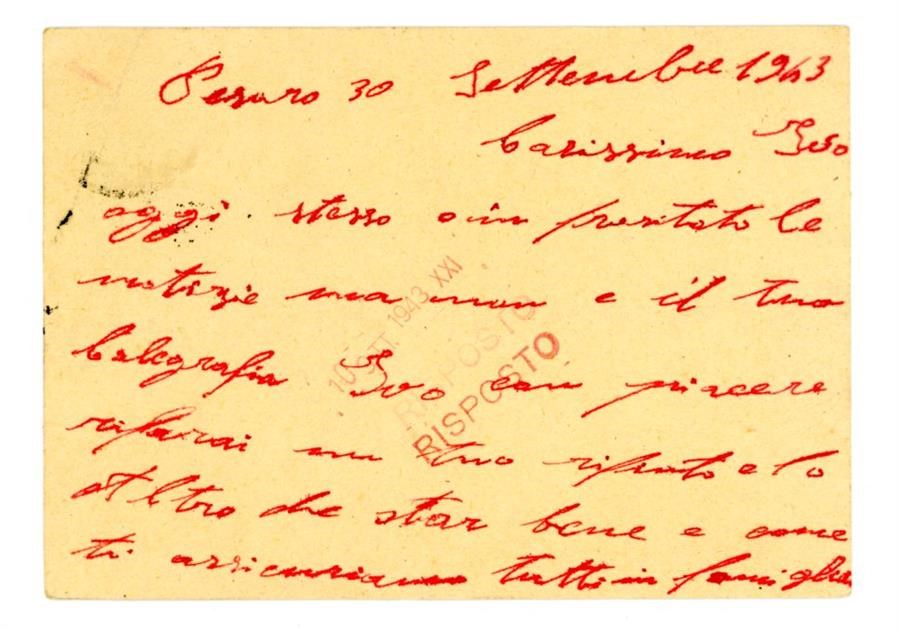 Pesaro 30 Settembre 1943
Carissimo Ivo
oggi stesso o in le
notizie ma non e il tuo
Calegrafia Ivo con piacere
10 OTT. 1943 XXI
RISPOSTO
RISPOSTO
un tuo e lo
altro che star bene e come
ti assicuriamo tutti in famiglia